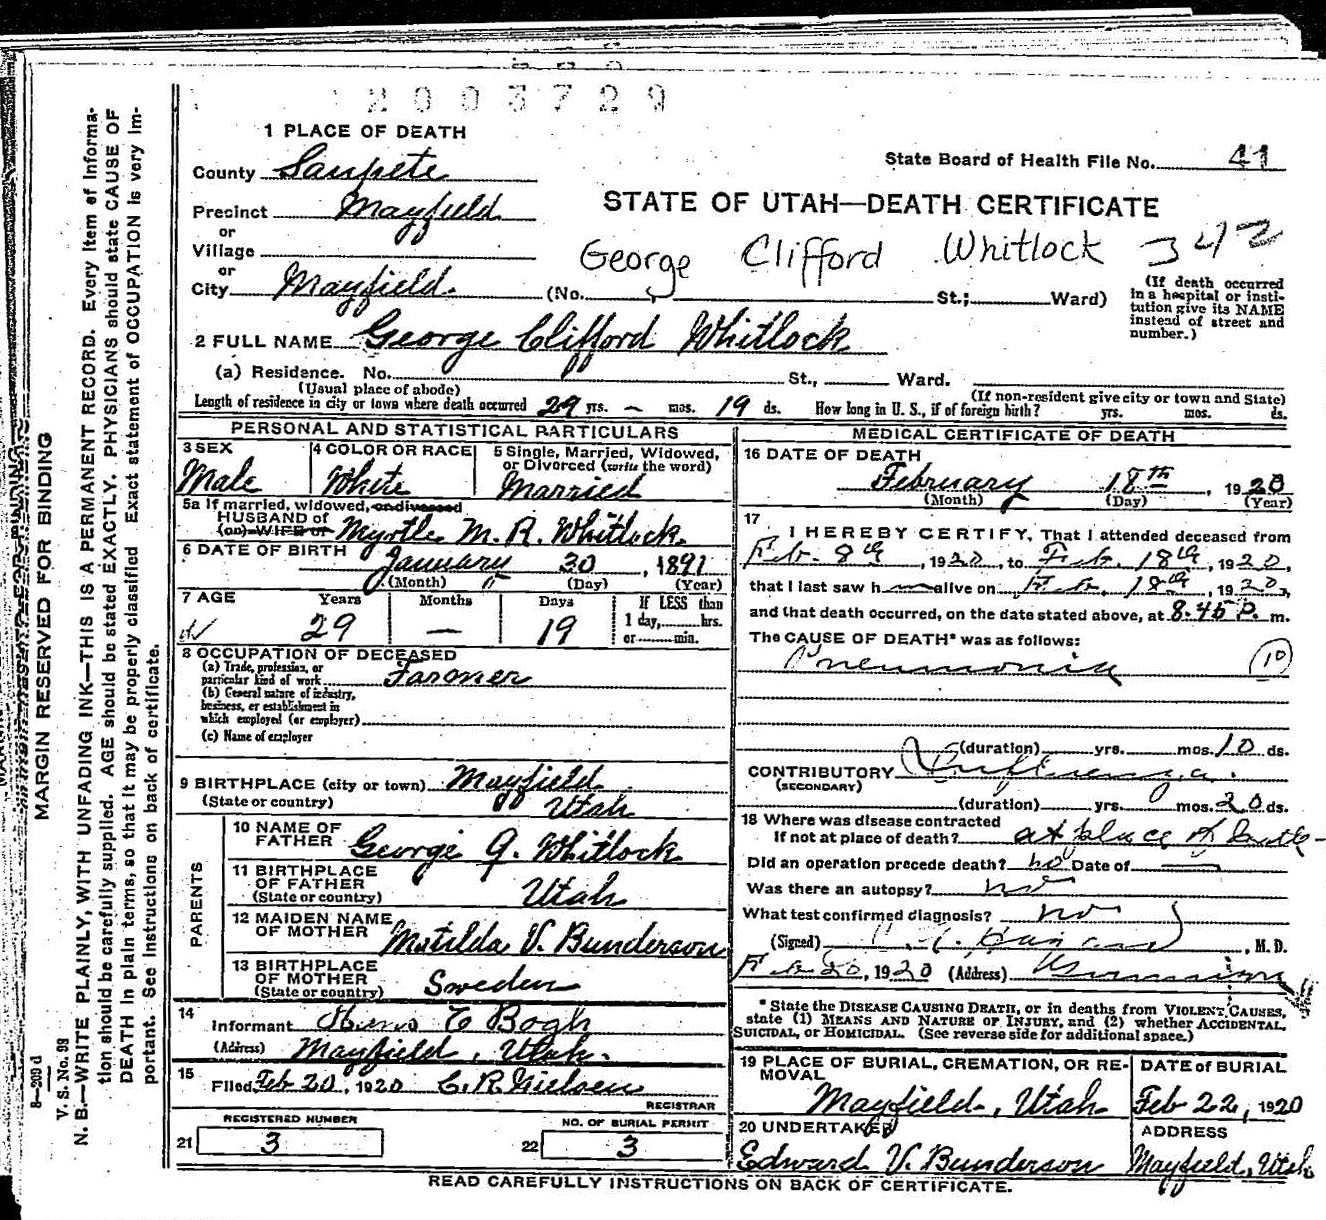 2003729
1 PLACE OF DEATH
County Sanpete
State Board of Health File No. 41
Precinct Mayfield
STATE OF UTAH—DEATH CERTIFICATE
or
Village
George Clifford Whitlock 342
or
City Mayfield. (No. St.; Ward)
(If death occurred
in a hospital or insti-
tution give its NAME
instead of street and
number.)
2 FULL NAME George Clifford Whitlock
(a) Residence. No. St., Ward.
(Usual place of abode) (If non-resident give city or town and State)
Length of residence in city or town where death occurred 29 yrs. — mos. 19 ds. How long in U. S., if of foreign birth? yrs. mos. ds.
PERSONAL AND STATISTICAL PARTICULARS
3 SEX 4 COLOR OR RACE 5 Single, Married, Widowed,
or Divorced (write the word)
Male White Married
5a If married, widowed, or divorced
HUSBAND of
(or) WIFE of Myrtle M. R. Whitlock
6 DATE OF BIRTH January 30, 1891
(Month) (Day) (Year)
7 AGE Years Months Days If LESS than
1 day, hrs.
or min.
29 — 19
8 OCCUPATION OF DECEASED
(a) Trade, profession, or
particular kind of work Farmer
(b) General nature of industry,
business, or establishment in
which employed (or employer)
(c) Name of employer
9 BIRTHPLACE (city or town) Mayfield
(State or country) Utah
PARENTS
10 NAME OF
FATHER George A. Whitlock
11 BIRTHPLACE
OF FATHER
(State or country) Utah
12 MAIDEN NAME
OF MOTHER Matilda V. Bunderson
13 BIRTHPLACE
OF MOTHER
(State or country) Sweden
14
Informant C Bogh
(Address) Mayfield, Utah.
15
Filed Feb 20, 1920 C. R. Nielsen
REGISTRAR
REGISTERED NUMBER NO. OF BURIAL PERMIT
21 3 22 3
MEDICAL CERTIFICATE OF DEATH
16 DATE OF DEATH
February 18th, 1920
(Month) (Day) (Year)
17
I HEREBY CERTIFY, That I attended deceased from
Feb. 8th, 1920, to Feb. 18th, 1920,
that I last saw h alive on Feb. 18th, 1920,
and that death occurred, on the date stated above, at 8.45 P. m.
The CAUSE OF DEATH* was as follows:
Pneumonia (10)
(duration) yrs. mos. 10 ds.
CONTRIBUTORY Influenza.
(SECONDARY)
(duration) yrs. mos. 20 ds.
18 Where was disease contracted
If not at place of death? at place of death-
Did an operation precede death? no Date of —
Was there an autopsy? no
What test confirmed diagnosis? no
(Signed) , M. D.
Feb 20, 1920 (Address)
* State the DISEASE CAUSING DEATH, or in deaths from VIOLENT CAUSES,
state (1) MEANS AND NATURE OF INJURY, and (2) whether ACCIDENTAL,
SUICIDAL, OR HOMICIDAL. (See reverse side for additional space.)
19 PLACE OF BURIAL, CREMATION, OR RE-
MOVAL
Mayfield, Utah
DATE OF BURIAL
Feb 22, 1920
20 UNDERTAKER
Edward V. Bunderson
ADDRESS
Mayfield, Utah
READ CAREFULLY INSTRUCTIONS ON BACK OF CERTIFICATE.
MARGIN RESERVED FOR BINDING
8—209 d
V. S. No. 98
N. B.—WRITE PLAINLY, WITH UNFADING INK—THIS IS A PERMANENT RECORD. Every item of Informa-
tion should be carefully supplied. AGE should be stated EXACTLY. PHYSICIANS should state CAUSE OF
DEATH in plain terms, so that it may be properly classified. Exact statement of OCCUPATION is very im-
portant. See instructions on back of certificate.